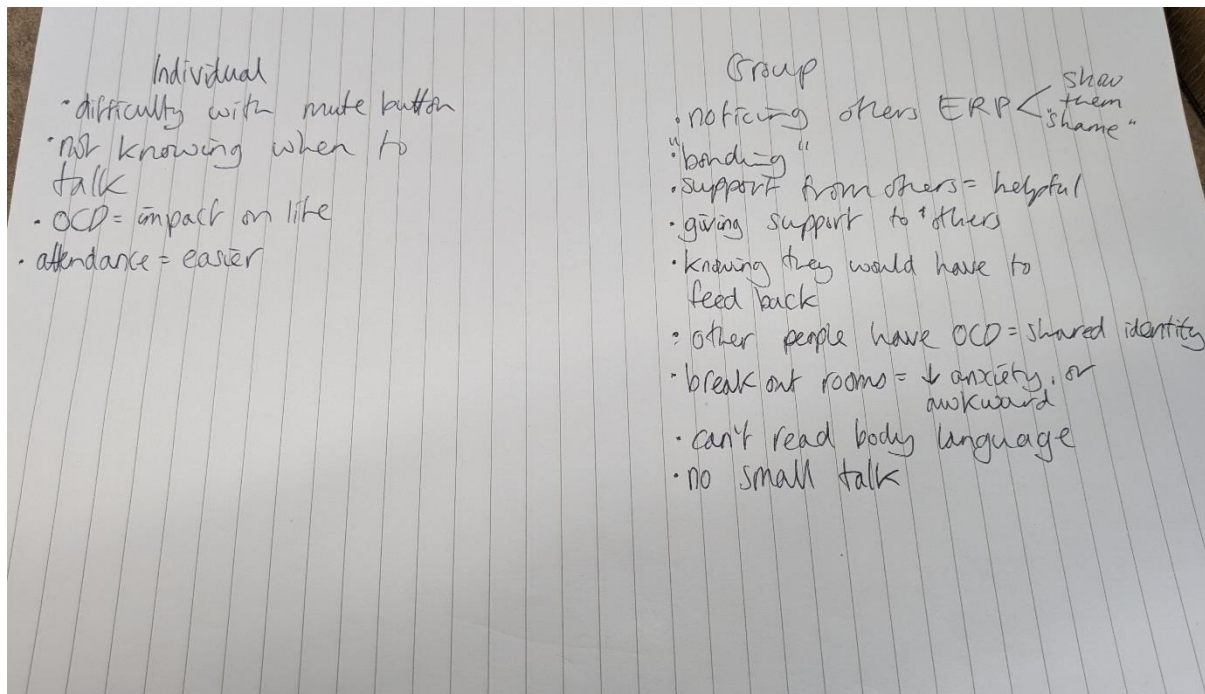 Individual
· difficulty with mute button
· not knowing when to
talk
· OCD = impact on life
· attendance = easier
Group
· noticing others ERP < show
them
"shame"
· "bonding"
· support from others = helpful
· giving support to others
· knowing they would have to
feed back
· other people have OCD = shared identity
· break out rooms = ↓ anxiety, or
awkward
· can't read body language
· no small talk